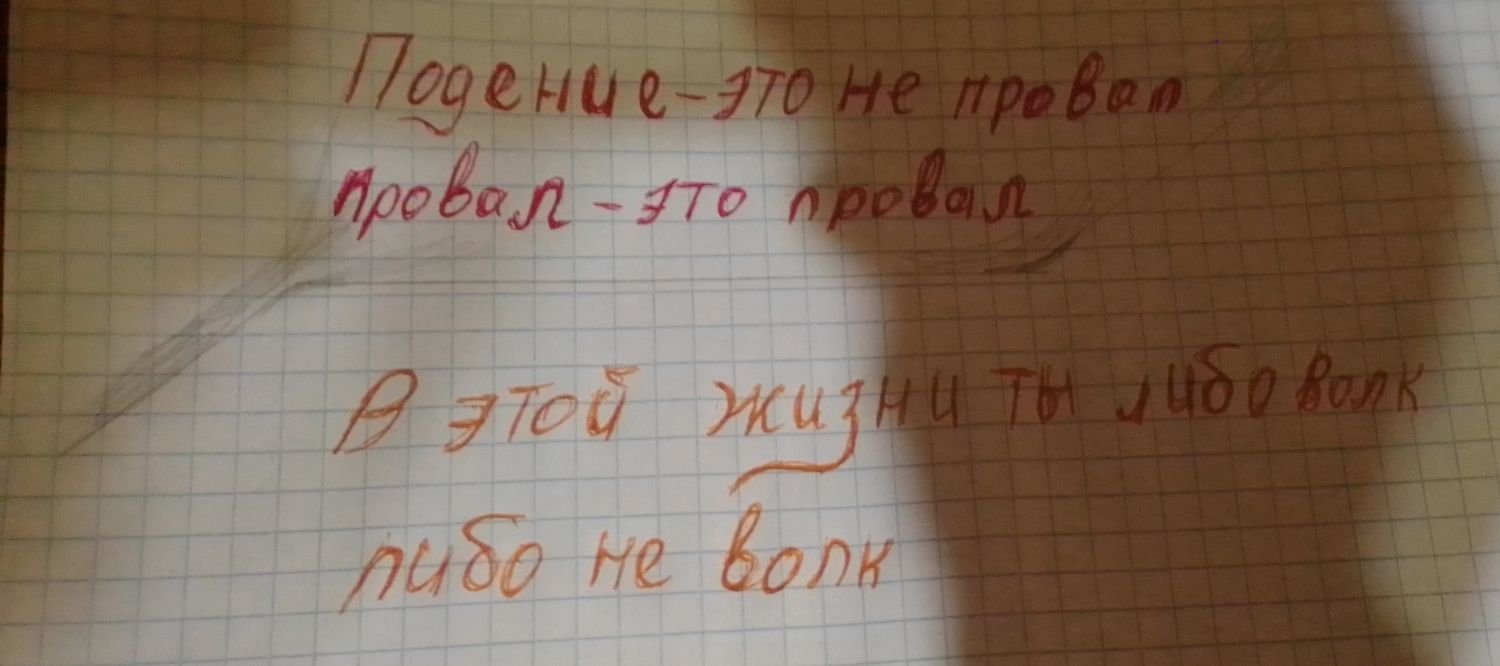 Подение-это не провал
провал-это провал
В этой жизни ты либо волк
либо не волк